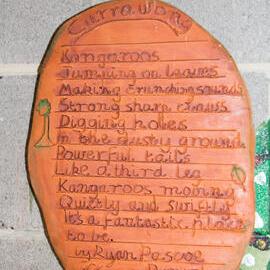 Currawong
Kangaroos
Jumping on leaves
Making Crunching sounds
Strong sharp claws
Digging holes
in the dusty ground
Powerful tails
Like a third leg
Kangaroos moving
Quietly and swiftly
It's a fantastic place
to be.
by Ryan Pascoe